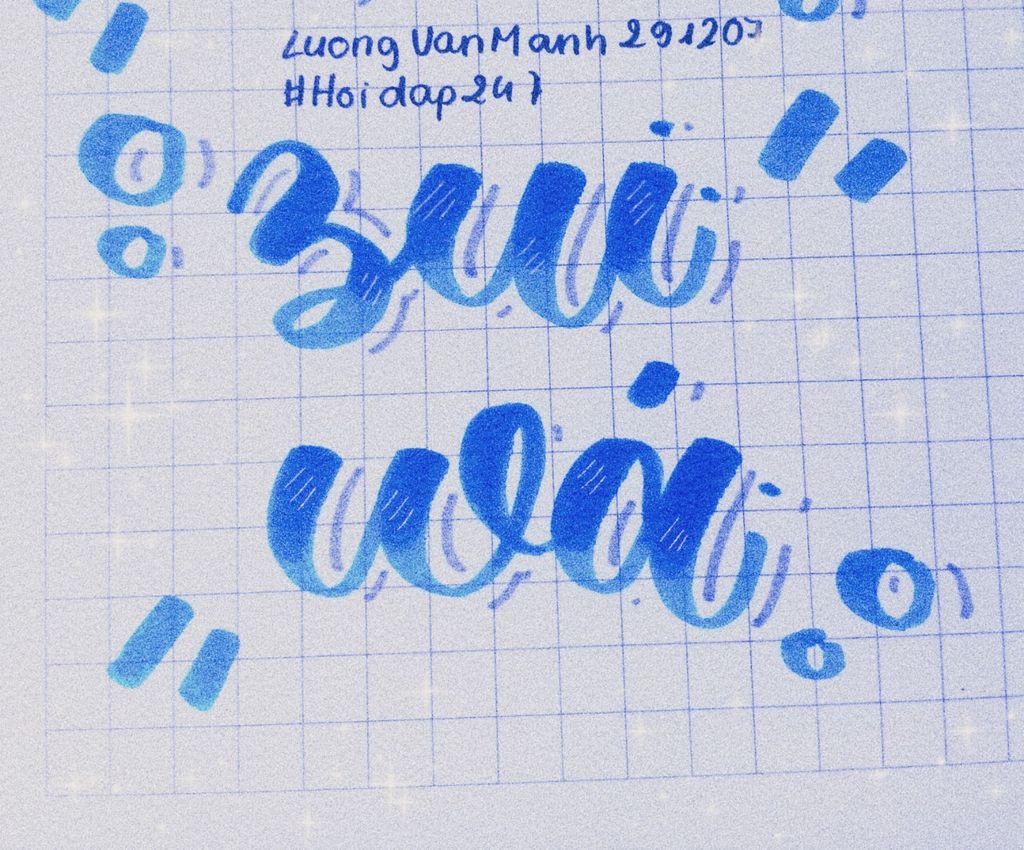 Luong Van Manh 291207
#Hoidap247
zui
wá